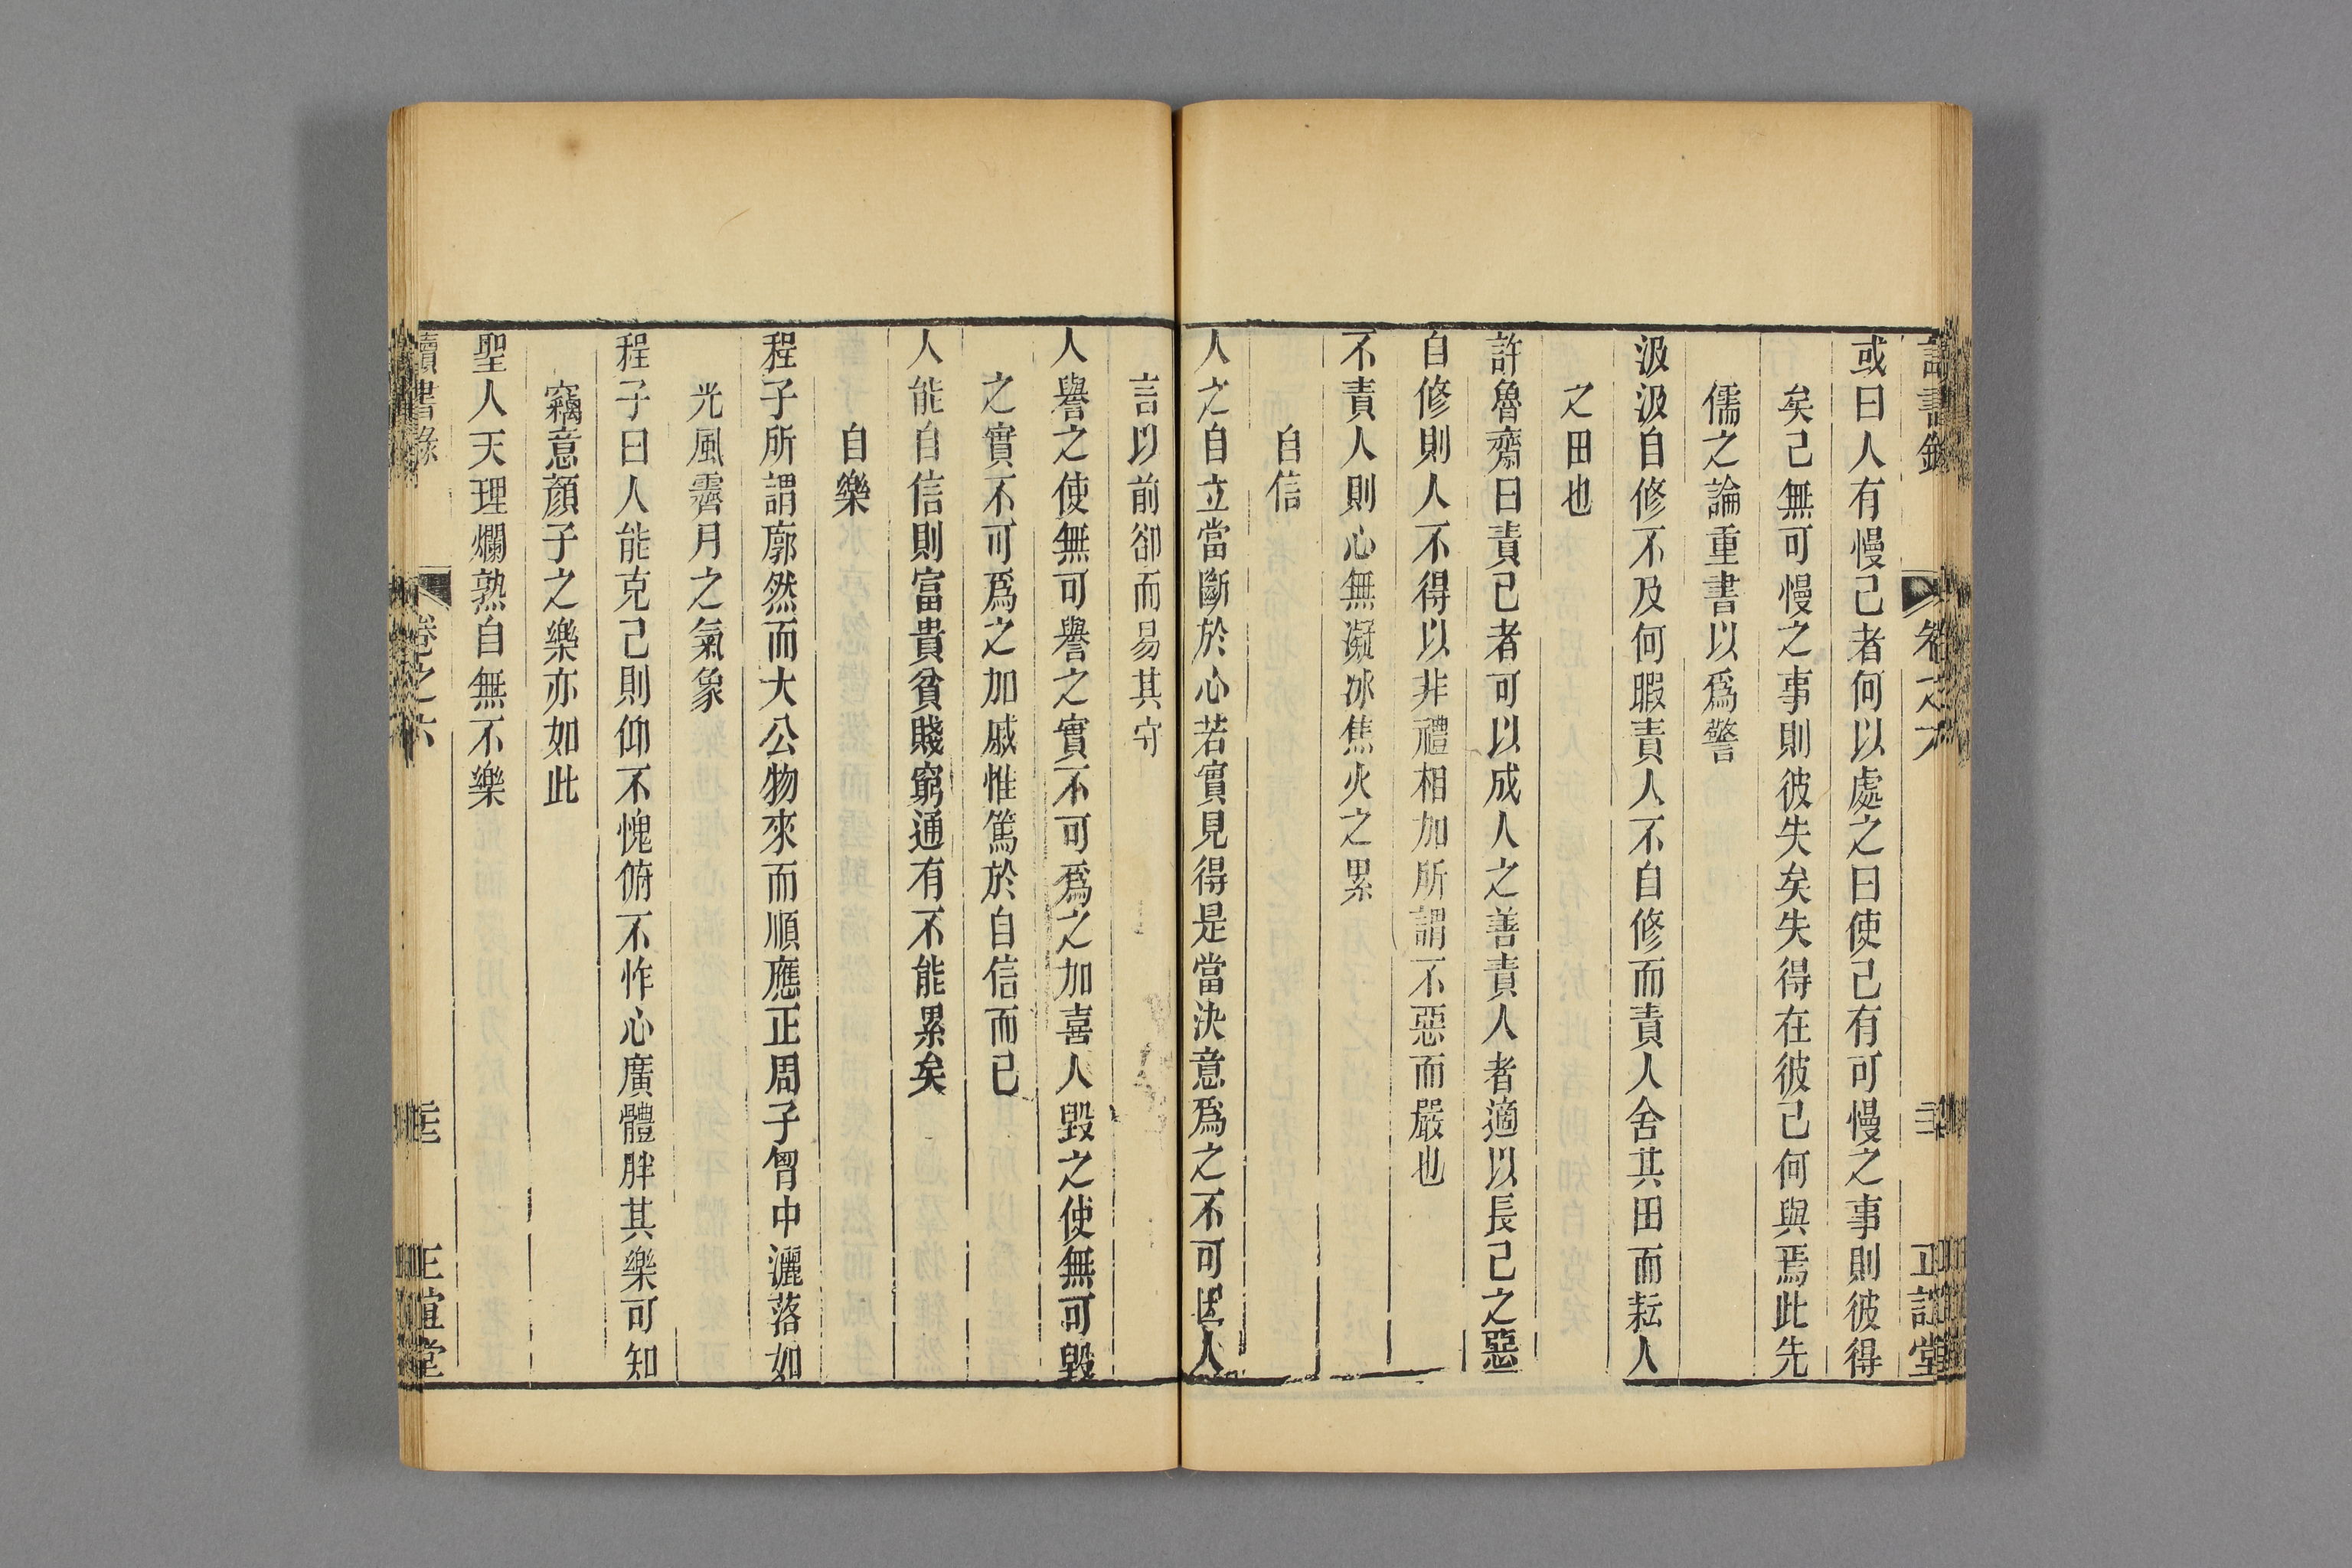 或曰人有慢己者何以處之曰使己有可慢之事則彼得
矣己無可慢之事則彼失矣失得在彼己何與焉此先
儒之論重書以爲警
汲汲自修不及何暇責人不自修而責人舍其田而耘人
之田也
許魯齋曰責己者可以成人之善責人者適以長己之惡
自修則人不得以非禮相加所謂不惡而嚴也
不責人則心無凝冰焦火之累
自信
人之自立當斷於心若實見得是當決意爲之不可因人
言以前卻而易其守
人譽之使無可譽之實不可爲之加喜人毀之使無可毀
之實不可爲之加戚惟篤於自信而已
人能自信則富貴貧賤窮通有不能累矣
自樂
程子所謂廓然而大公物來而順應正周子胷中灑落如
光風霽月之氣象
程子曰人能克己則仰不愧俯不怍心廣體胖其樂可知
竊意顏子之樂亦如此
聖人天理爛熟自無不樂
讀書錄
卷之六
正誼堂